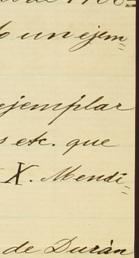 o un ejem-
ejemplar
s etc. que
X. Mendi-
de Durán